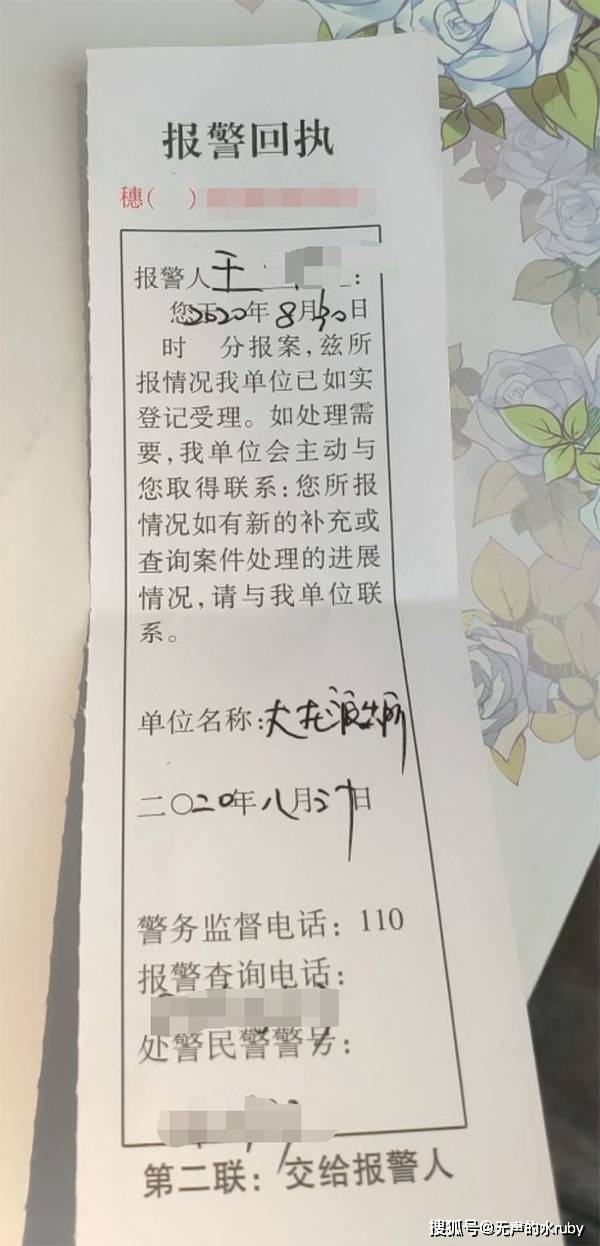 报警回执
穗( )
报警人王 :
您于2020年8月30日
时 分报案,兹所
报情况我单位已如实
登记受理。如处理需
要,我单位会主动与
您取得联系:您所报
情况如有新的补充或
查询案件处理的进展
情况,请与我单位联
系。
单位名称:大龙派出所
二〇20年八月三十日
警务监督电话:110
报警查询电话:
处警民警警号:
第二联:交给报警人
搜狐号@无声的水ruby